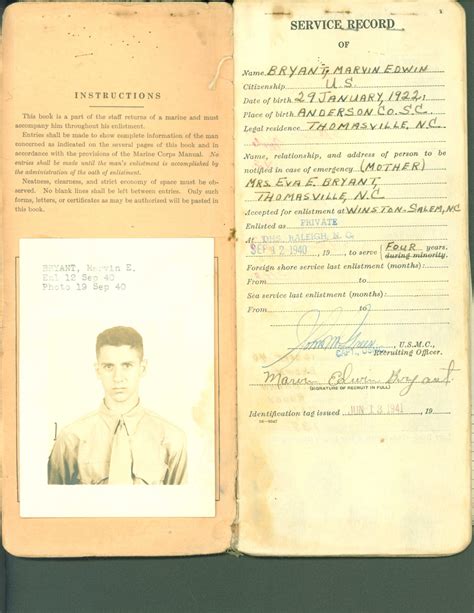 INSTRUCTIONS
This book is a part of the staff returns of a marine and must
accompany him throughout his enlistment.
Entries shall be made to show complete information of the man
concerned as indicated on the several pages of this book and in
accordance with the provisions of the Marine Corps Manual. No
entries shall be made until the man's enlistment is accomplished by
the administration of the oath of enlistment.
Neatness, clearness, and strict economy of space must be ob-
served. No blank lines shall be left between entries. Only such
forms, letters, or certificates as may be authorized will be pasted in
this book.
BRYANT, Marvin E.
Enl 12 Sep 40
Photo 19 Sep 40
SERVICE RECORD
OF
Name, BRYANT, MARVIN EDWIN
Citizenship U.S.
Date of birth 29 JANUARY, 1922.
Place of birth ANDERSON CO. S.C.
Legal residence THOMASVILLE, N.C.
Name, relationship, and address of person to be
notified in case of emergency (MOTHER)
MRS. EVA E. BRYANT,
THOMASVILLE, N.C.
Accepted for enlistment at WINSTON-SALEM, NC
Enlisted as PRIVATE
At RALEIGH, N. C.
SEP 12 1940, 19 to serve FOUR years.
during minority.
Foreign shore service last enlistment (months):
From to
Sea service last enlistment (months):
From to
, U.S.M.C.,
Recruiting Officer.
Marvin Edwin Bryant
(SIGNATURE OF RECRUIT IN FULL)
Identification tag issued JUN 13 1941, 19